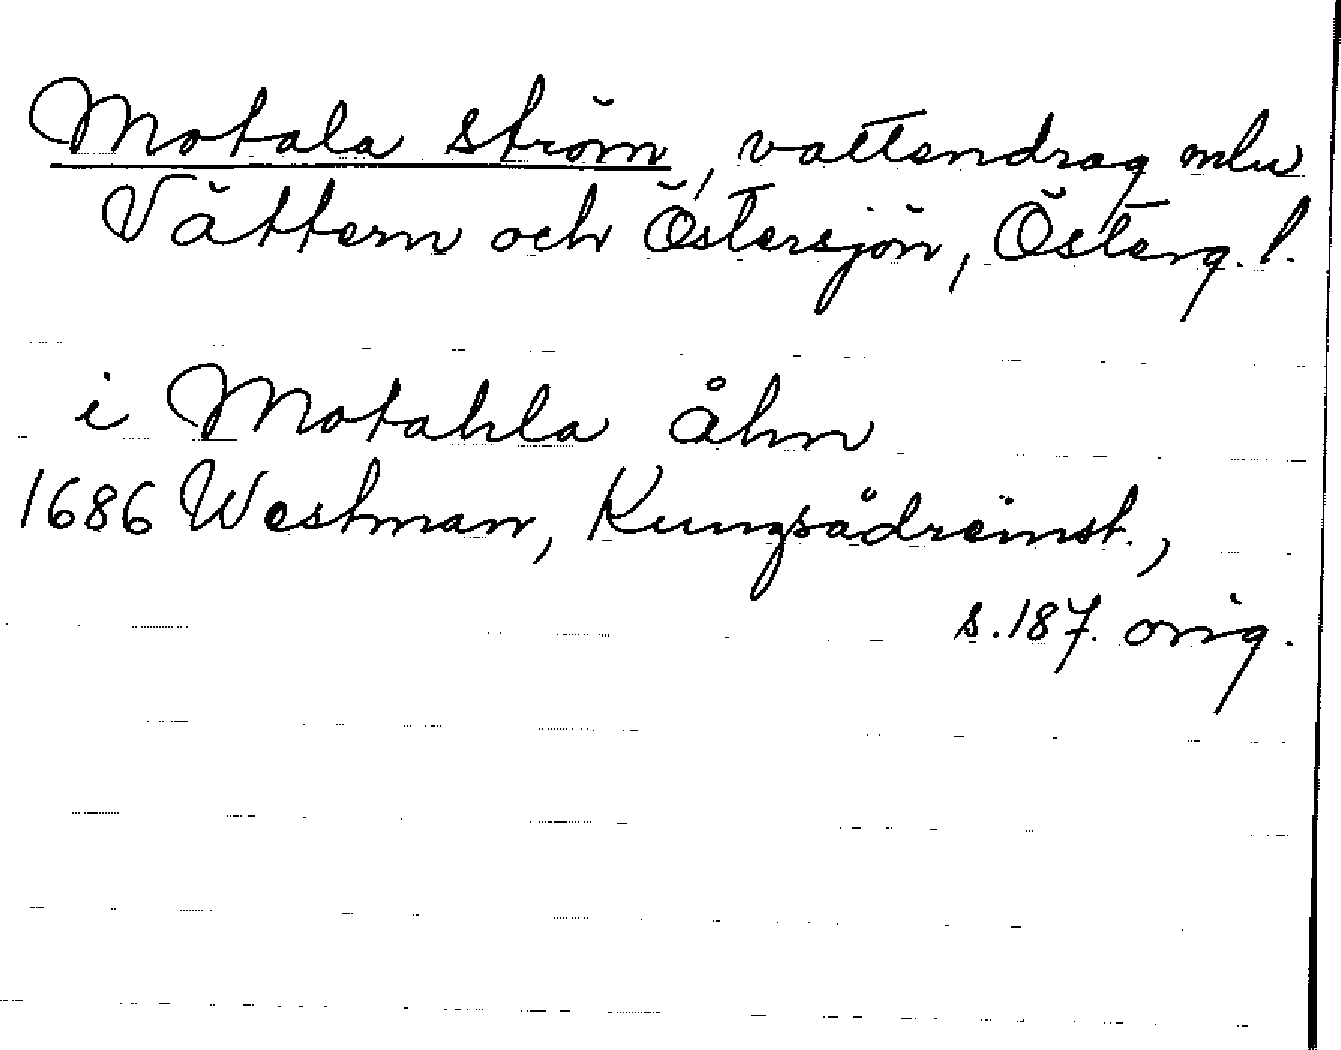 Motala ström, vattendrag mlu
Vättern och Östersjön, Österg. l.
i Motahla åhn
1686 Westman, Kungsådreinst.,
s. 187. orig.